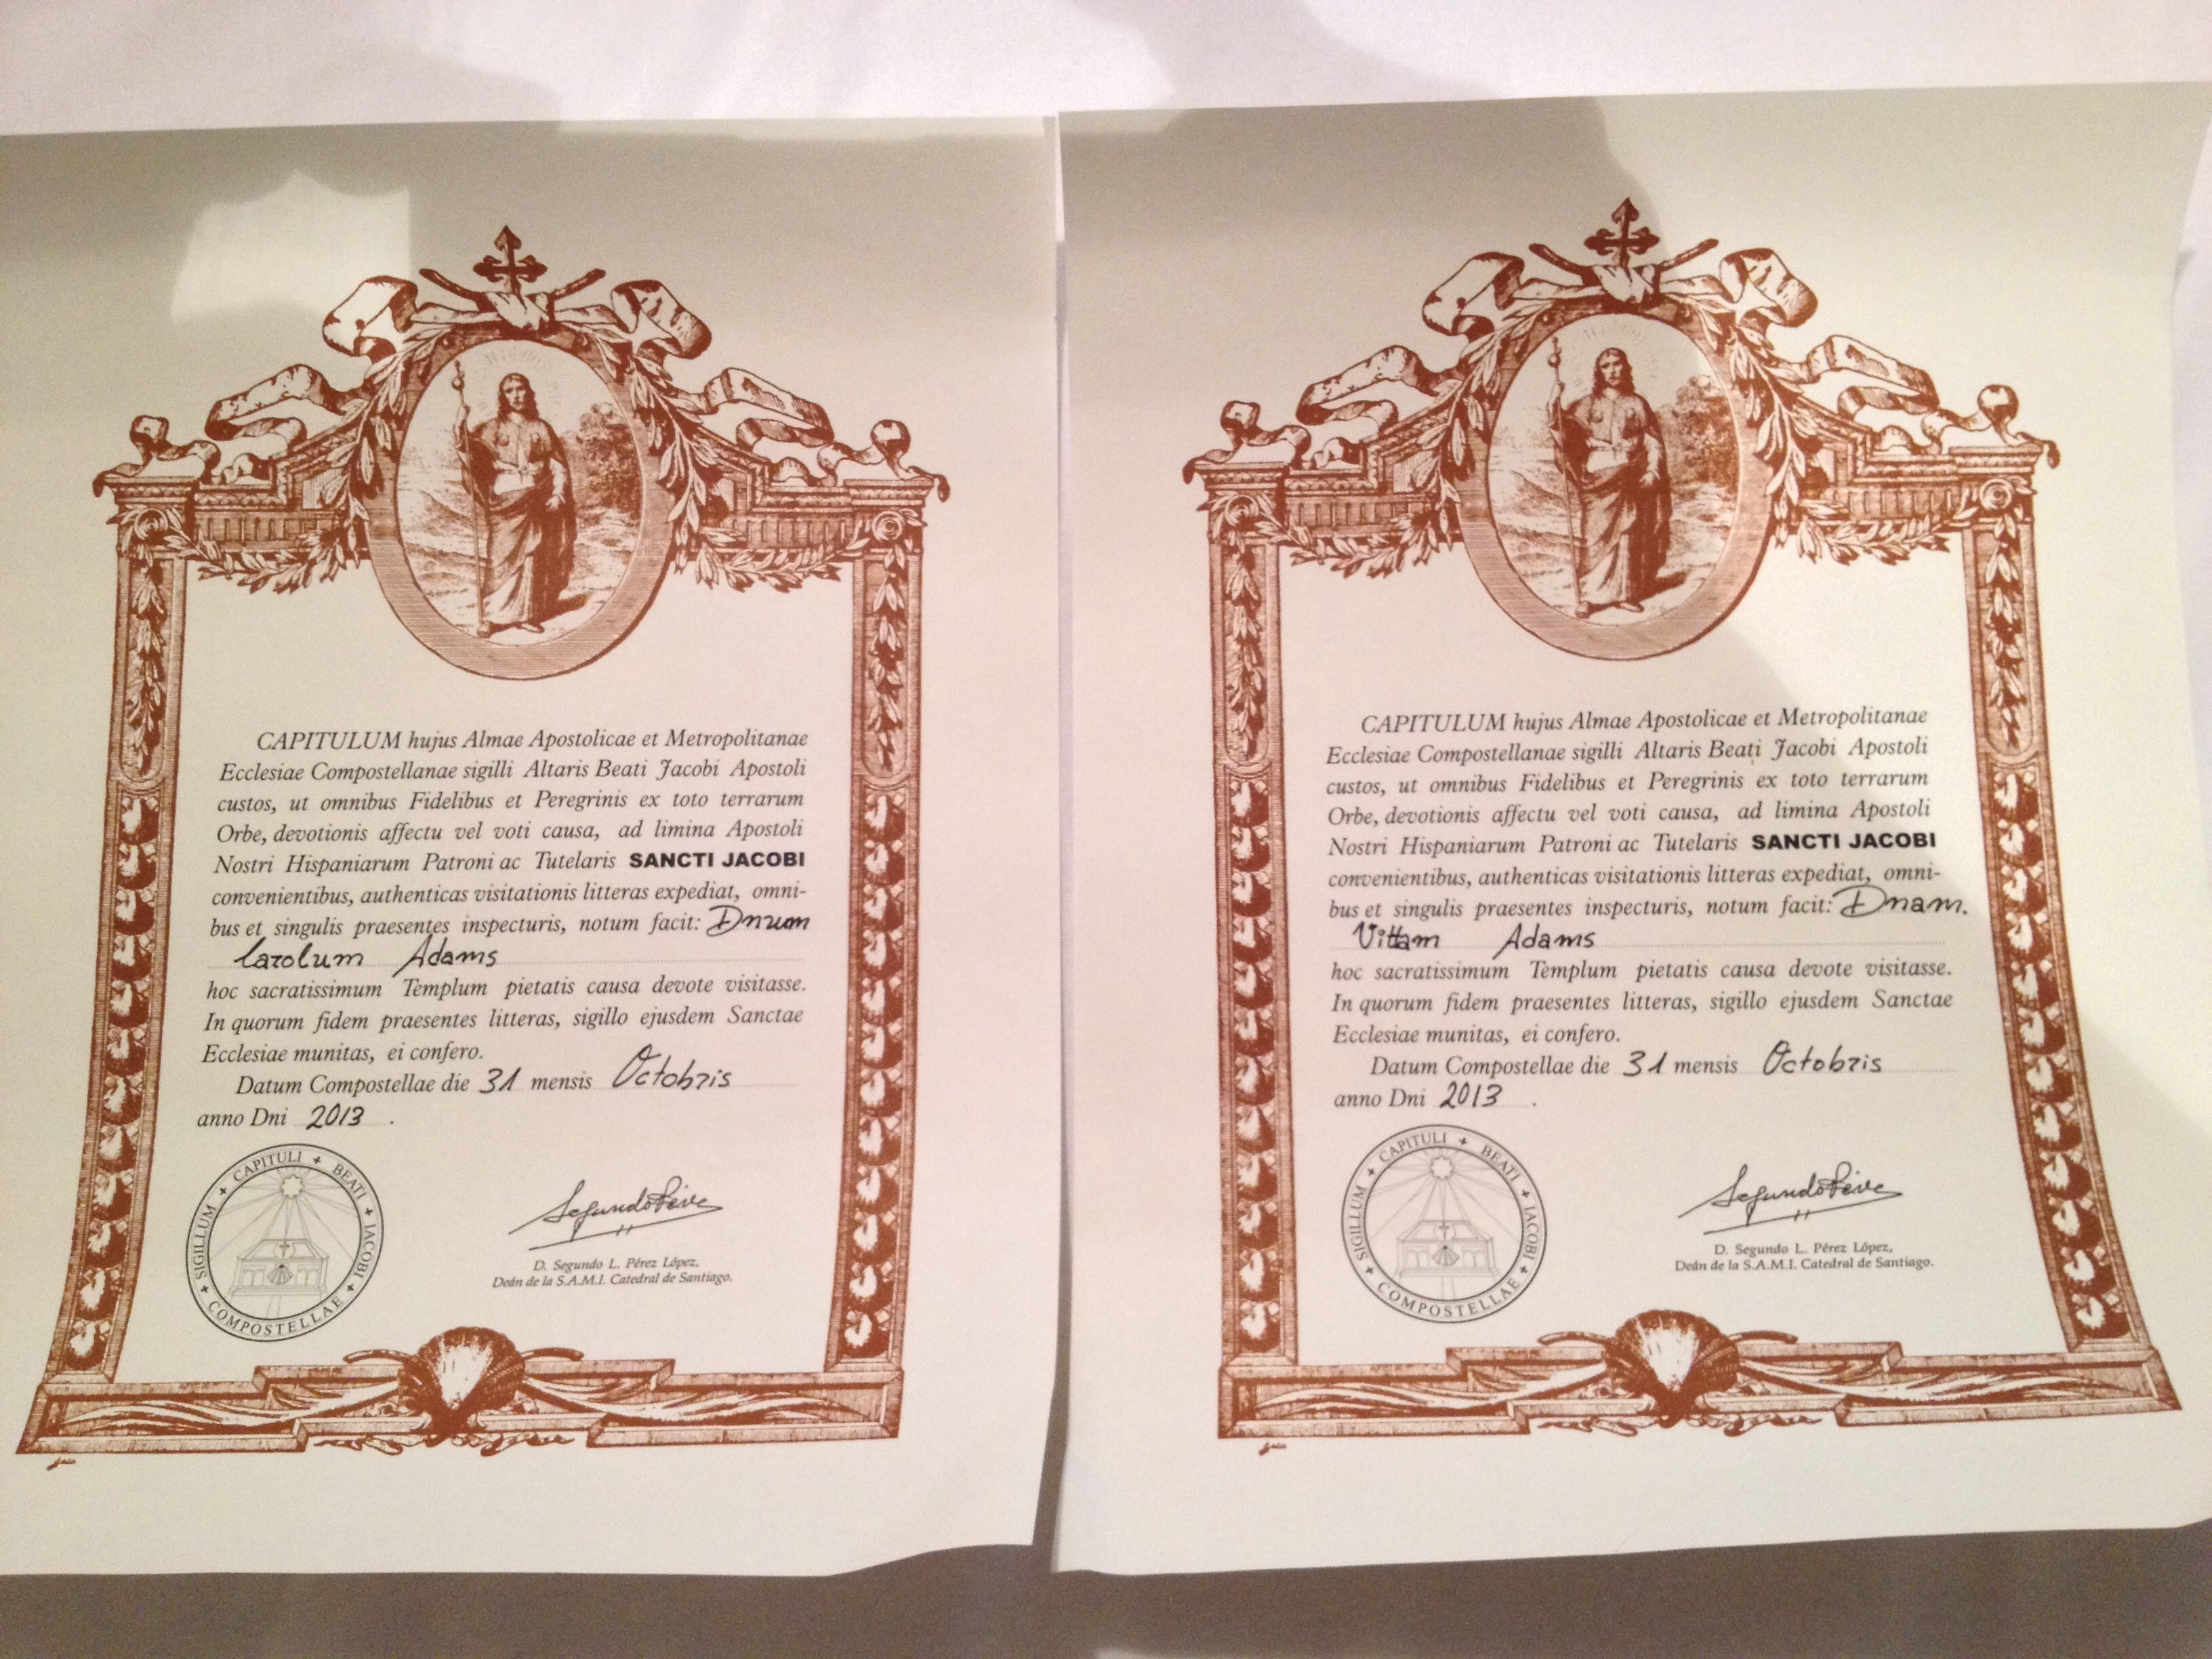 CAPITULUM hujus Almae Apostolicae et Metropolitanae
Ecclesiae Compostellanae sigilli Altaris Beati Jacobi Apostoli
custos, ut omnibus Fidelibus et Peregrinis ex toto terrarum
Orbe, devotionis affectu vel voti causa, ad limina Apostoli
Nostri Hispaniarum Patroni ac Tutelaris SANCTI JACOBI
convenientibus, authenticas visitationis litteras expediat, omni-
bus et singulis praesentes inspecturis, notum facit: Dnum
Carolum Adams
hoc sacratissimum Templum pietatis causa devote visitasse.
In quorum fidem praesentes litteras, sigillo ejusdem Sanctae
Ecclesiae munitas, ei confero.
Datum Compostellae die 31 mensis Octobris
anno Dni 2013 .
SIGILLUM + CAPITULI + BEATI + IACOBI + COMPOSTELLAE +
D. Segundo L. Pérez López,
Deán de la S.A.M.I. Catedral de Santiago.
CAPITULUM hujus Almae Apostolicae et Metropolitanae
Ecclesiae Compostellanae sigilli Altaris Beati Jacobi Apostoli
custos, ut omnibus Fidelibus et Peregrinis ex toto terrarum
Orbe, devotionis affectu vel voti causa, ad limina Apostoli
Nostri Hispaniarum Patroni ac Tutelaris SANCTI JACOBI
convenientibus, authenticas visitationis litteras expediat, omni-
bus et singulis praesentes inspecturis, notum facit: Dnam.
Vittam Adams
hoc sacratissimum Templum pietatis causa devote visitasse.
In quorum fidem praesentes litteras, sigillo ejusdem Sanctae
Ecclesiae munitas, ei confero.
Datum Compostellae die 31 mensis Octobris
anno Dni 2013 .
SIGILLUM + CAPITULI + BEATI + IACOBI + COMPOSTELLAE +
D. Segundo L. Pérez López,
Deán de la S.A.M.I. Catedral de Santiago.